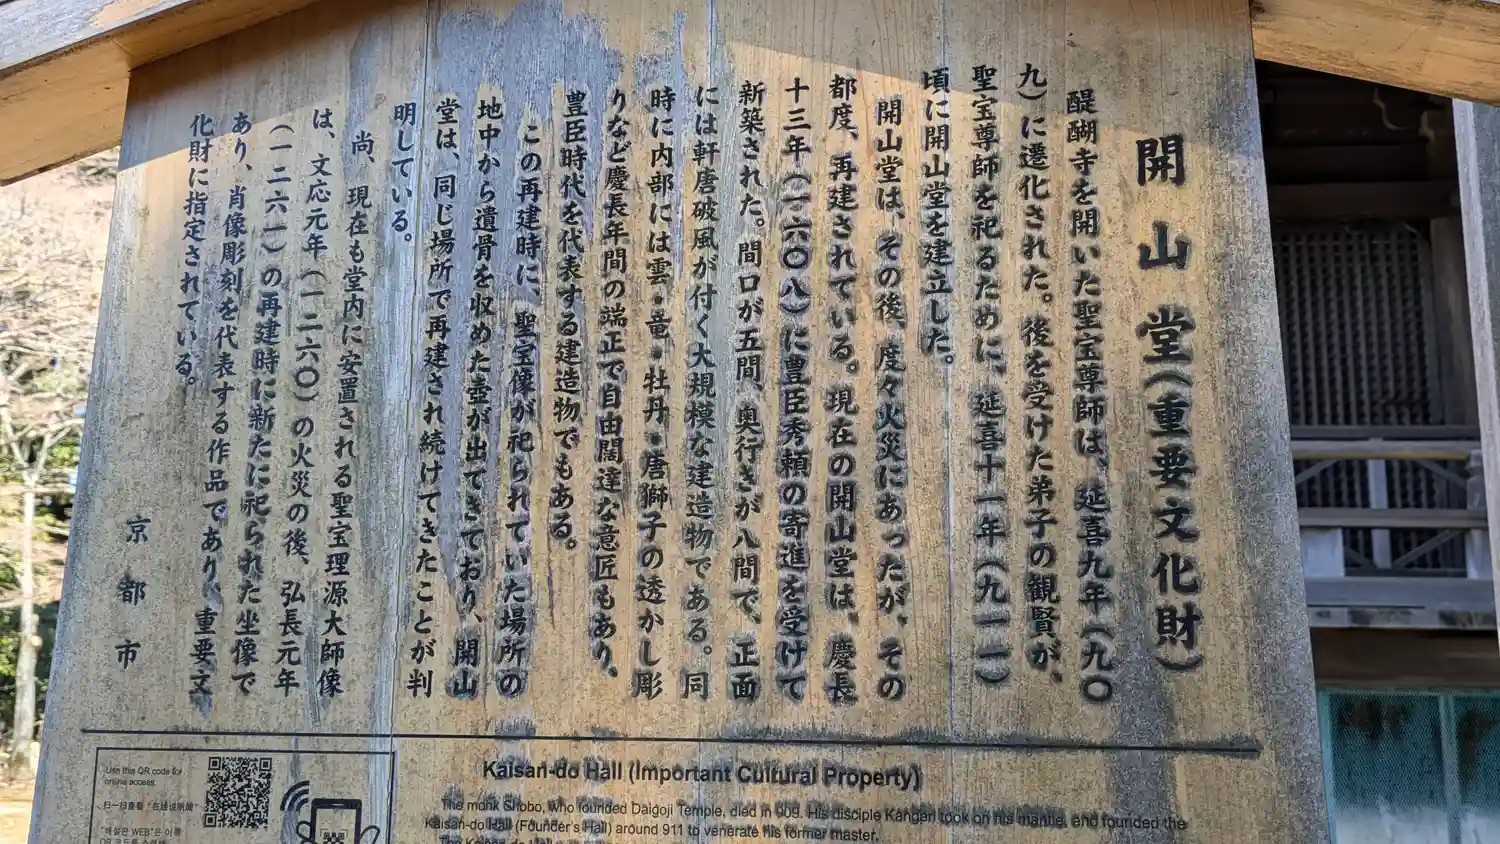 開山堂(重要文化財)
醍醐寺を開いた聖宝尊師は、延喜九年(九〇
九)に遷化された。後を受けた弟子の観賢が、
聖宝尊師を祀るために、延喜十一年(九一一)
頃に開山堂を建立した。
開山堂は、その後、度々火災にあったが、その
都度、再建されている。現在の開山堂は、慶長
十三年(一六〇八)に豊臣秀頼の寄進を受けて
新築された。間口が五間、奥行きが八間で、正面
には軒唐破風が付く大規模な建造物である。同
時に内部には雲・竜・牡丹・唐獅子の透かし彫
りなど慶長年間の端正で自由闊達な意匠もあり、
豊臣時代を代表する建造物でもある。
この再建時に、聖宝像が祀られていた場所の
地中から遺骨を収めた壺が出てきており、開山
堂は、同じ場所で再建され続けてきたことが判
明している。
尚、現在も堂内に安置される聖宝理源大師像
は、文応元年(一二六〇)の火災の後、弘長元年
(一二六一)の再建時に新たに祀られた坐像で
あり、肖像彫刻を代表する作品であり、重要文
化財に指定されている。
京都市
Use this QR code for
online access.
扫一扫查看"在线说明牌"
"해설판 WEB"은 이쪽
Kaisan-do Hall (Important Cultural Property)
The monk Shobo, who founded Daigoji Temple, died in 909. His disciple Kangen took on his mantle, and founded the
Kaisan-do Hall (Founder's Hall) around 911 to venerate his former master.
The Kaisan-do Hall